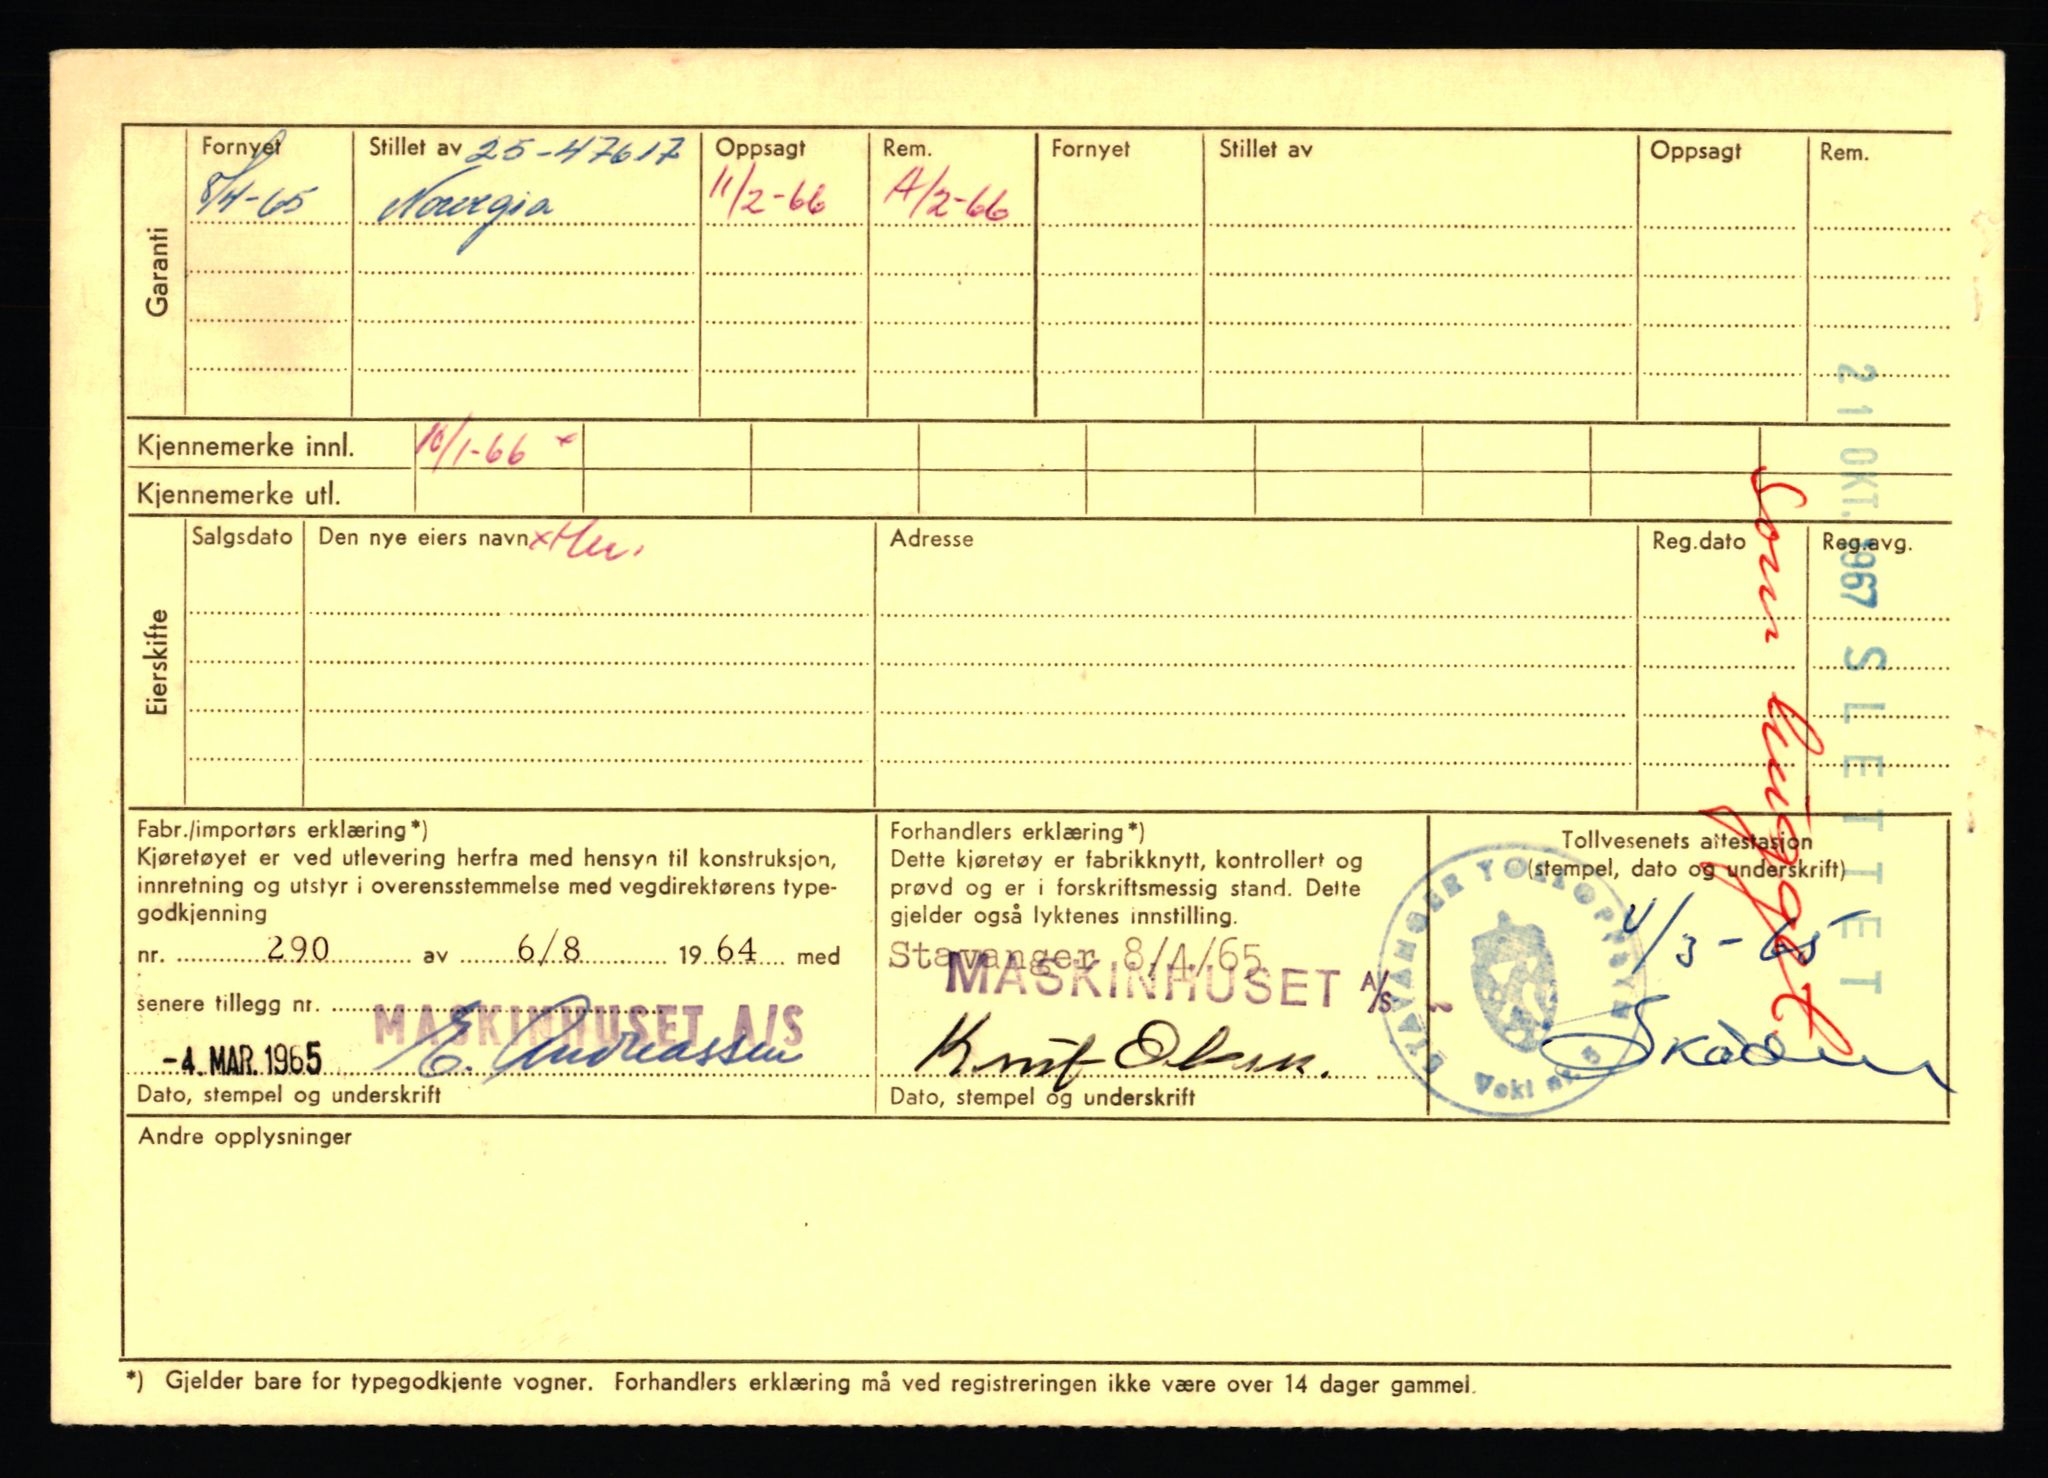 Garanti
Fornyet Stillet av 25-47617 Oppsagt Rem. Fornyet Stillet av Oppsagt Rem.
8/4-65 Norergia 11/2-66 A/2-66
Kjennemerke innl. 10/1-66 x
Kjennemerke utl.
Eierskifte
Salgsdato Den nye eiers navn x Adresse Reg.dato Reg.avg.
21 OKT. 1967 SLETTET
Som hugget
Fabr./importørs erklæring*)
Kjøretøyet er ved utlevering herfra med hensyn til konstruksjon,
innretning og utstyr i overensstemmelse med vegdirektørens type-
godkjenning
nr. 290 av 6/8 1964 med
senere tillegg nr.
MASKINHUSET A/S
-4. MAR. 1965 E. Andreassen
Dato, stempel og underskrift
Forhandlers erklæring*)
Dette kjøretøy er fabrikknytt, kontrollert og
prøvd og er i forskriftsmessig stand. Dette
gjelder også lyktenes innstilling.
Stavanger 8/4/65
MASKINHUSET A/S
Knut Olsen.
Dato, stempel og underskrift
Tollvesenets attestasjon
(stempel, dato og underskrift)
STAVANGER TOLLOPPSYN
Vakt nr. 3
4/3-65
Andre opplysninger
*) Gjelder bare for typegodkjente vogner. Forhandlers erklæring må ved registreringen ikke være over 14 dager gammel.